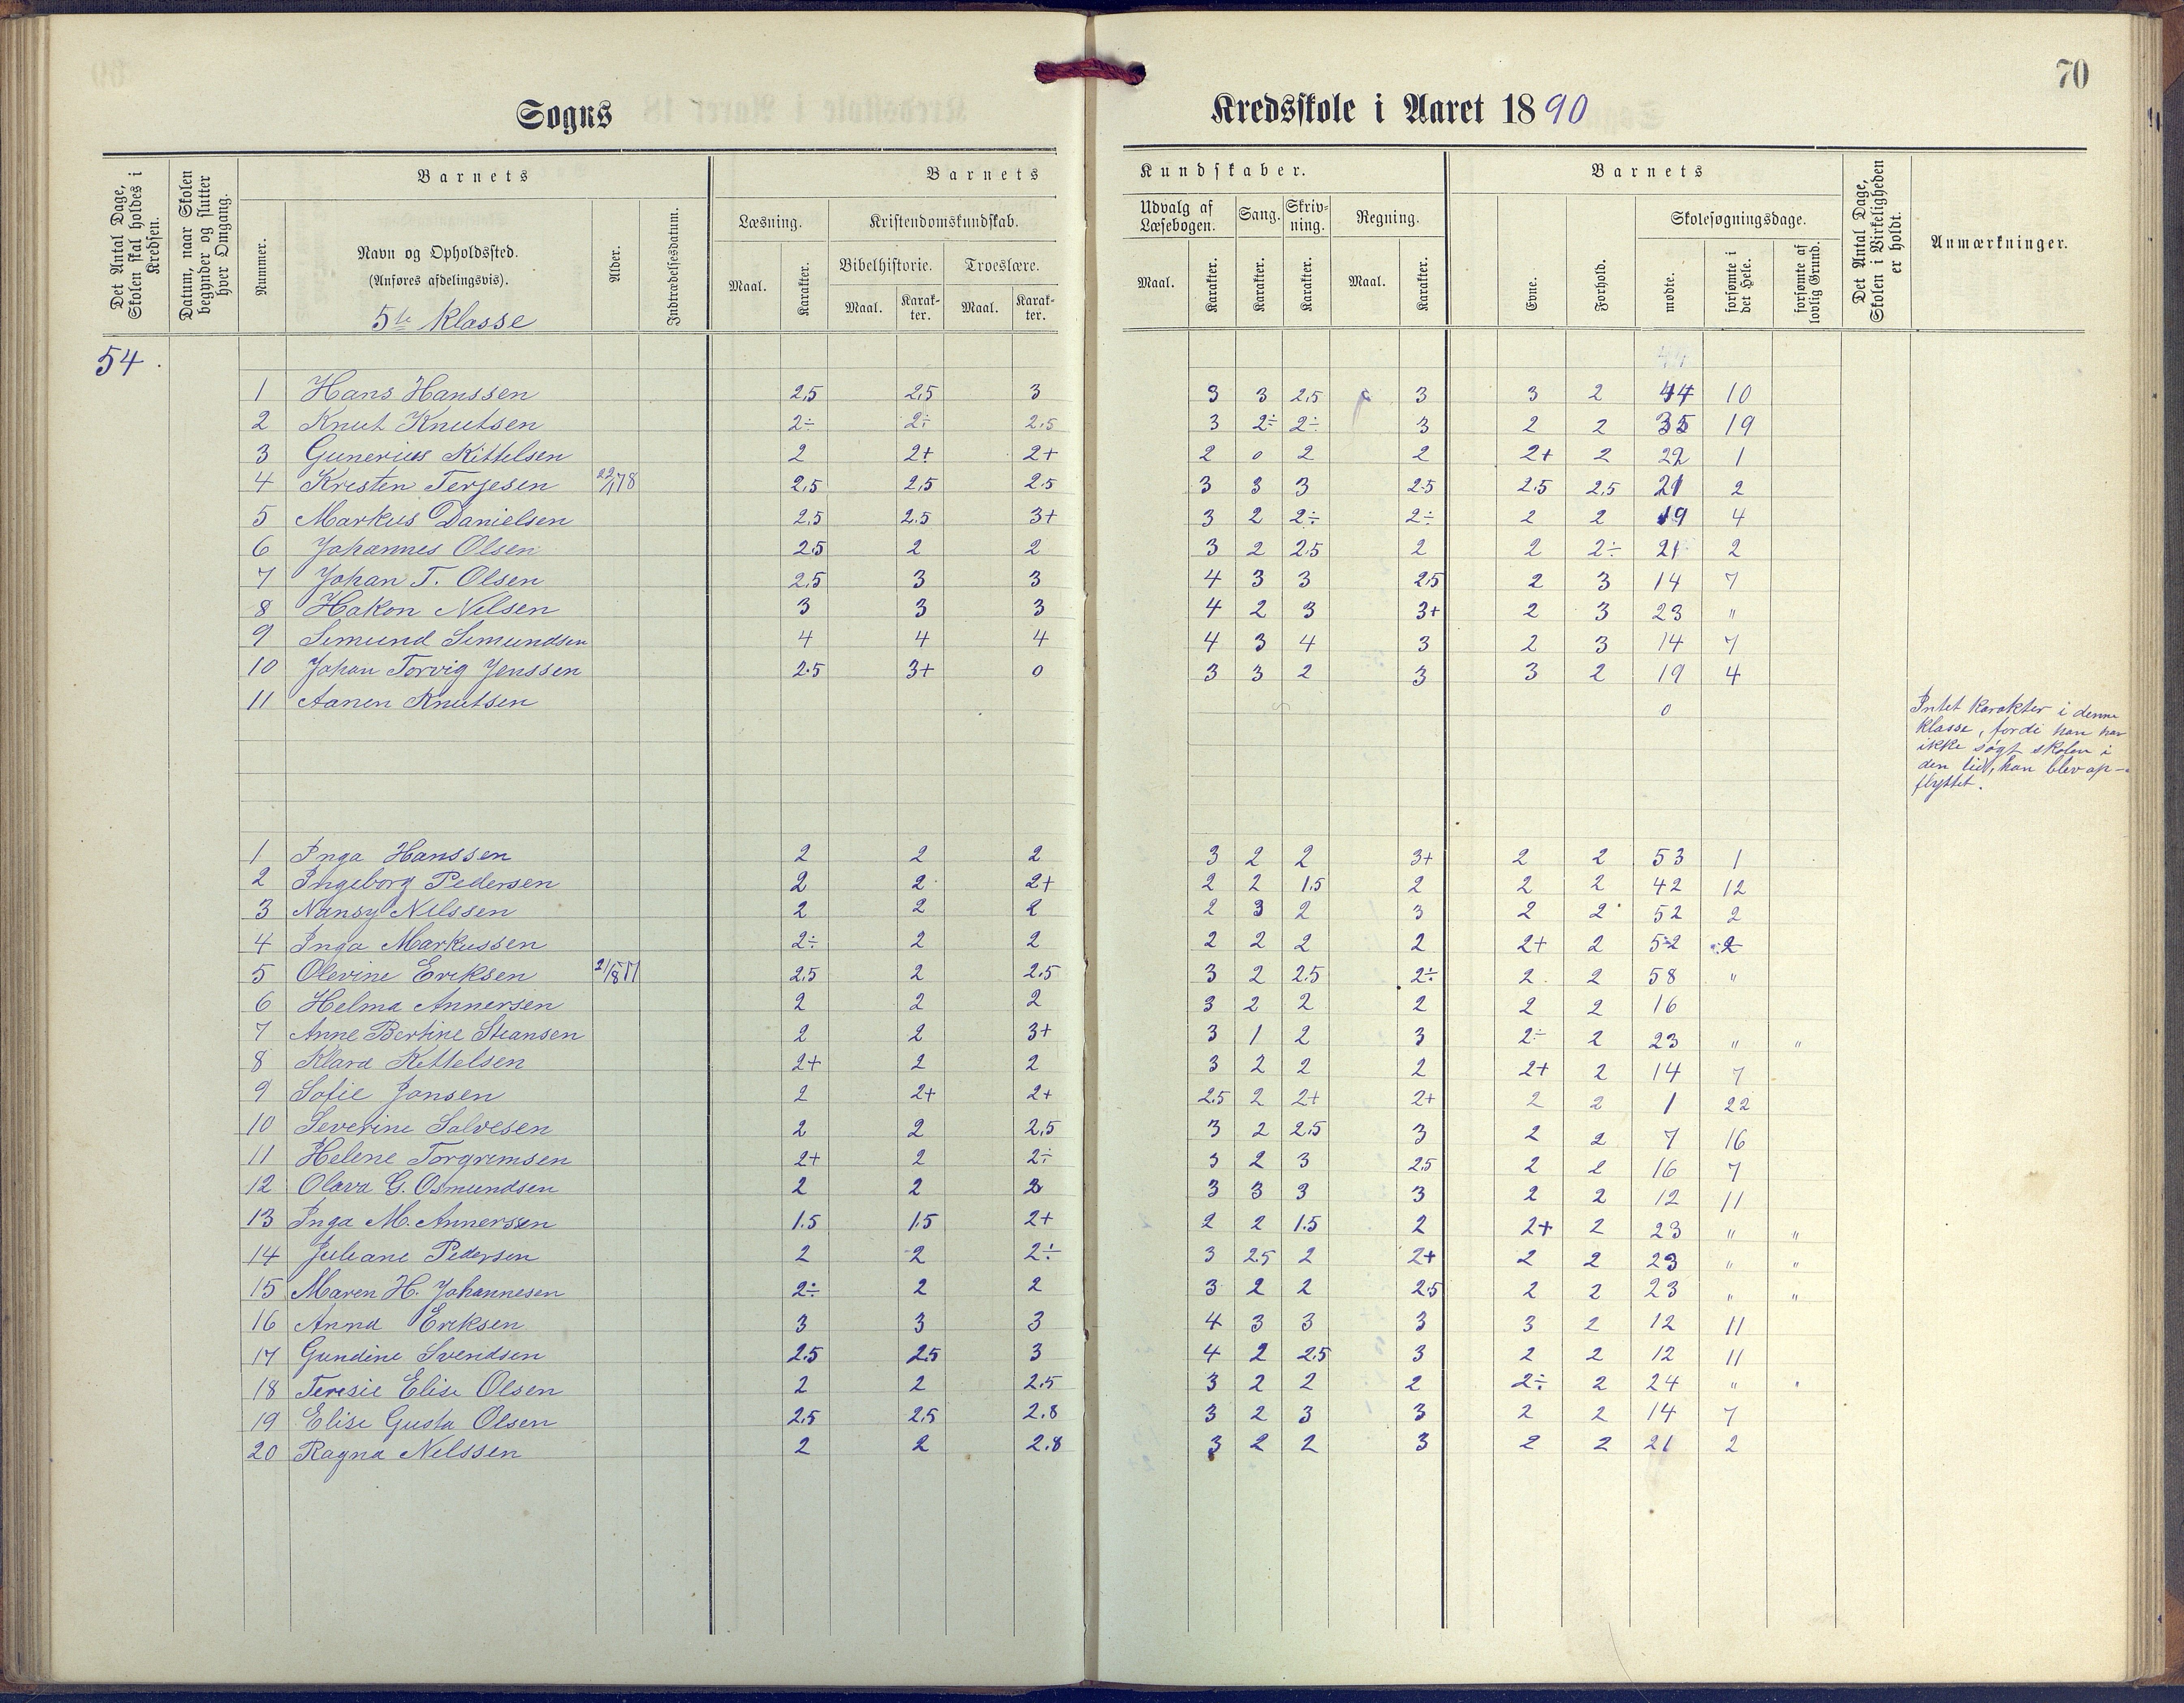 70
Sogns Kredsskole i Aaret 1890
Det Antal Dage, Skolen skal holdes i Kredsen.
Datum, naar Skolen begynder og slutter hver Omgang.
Barnets
Nummer.
Navn og Opholdssted.
(Anføres afdelingsvis).
5te Klasse
Alder.
Indtrædelsesdatum.
Barnets Kundskaber.
Læsning.
Maal.
Karakter.
Kristendomskundskab.
Bibelhistorie.
Maal.
Karakter.
Troeslære.
Maal.
Karakter.
Udvalg af Læsebogen.
Maal.
Karakter.
Sang.
Karakter.
Skrivning.
Karakter.
Regning.
Maal.
Karakter.
Barnets
Evne.
Forhold.
Skolesøgningsdage.
mødte.
forsømte i det Hele.
forsømte af lovlig Grund.
Det Antal Dage, Skolen i Virkeligheden er holdt.
Anmærkninger.
54
1 Hans Hanssen 2,5 2,5 3 3 3 2,5 3 3 2 44 10
2 Knut Knutsen 2÷ 2÷ 2,5 3 2÷ 2÷ 3 2 2 35 19
3 Gunerius Kittelsen 2 2+ 2+ 2 0 2 2 2+ 2 22 1
4 Kristen Terjesen 22/1 78 2,5 2,5 2.5 3 3 3 2.5 2.5 2,5 21 2
5 Markus Danielsen 2,5 2.5 3+ 3 2 2÷ 2÷ 2 2 19 4
6 Johannes Olsen 2.5 2 2 3 2 2.5 2 2 2÷ 21 2
7 Johan T. Olsen 2,5 3 3 4 3 3 2,5 2 3 14 7
8 Hakon Nilsen 3 3 3 4 2 3 3+ 2 3 23 "
9 Simund Simundsen 4 4 4 4 3 4 3 2 3 14 7
10 Johan Torvig Jenssen 2.5 3+ 0 3 3 2 3 3 2 19 4
11 Aanen Knutsen 0
Intet karakter i denne
klasse, fordi han har
ikke søgt skolen i
den tid, han blev op-
flyttet.
1 Inga Hanssen 2 2 2 3 2 2 3+ 2 2 53 1
2 Ingeborg Pedersen 2 2 2+ 2 2 1.5 2 2 2 42 12
3 Nansy Nilssen 2 2 2 2 3 2 3 2 2 52 2
4 Inga Markussen 2÷ 2 2 2 2 2 2 2+ 2 52 2
5 Olevine Eriksen 2,5 2 2.5 3 2 2.5 2÷ 2 2 58 "
6 Helma Annersen 2 2 2 3 2 2 2 2 2 16
7 Anne Bertine Steansen 2 2 3+ 3 1 2 3 2÷ 2 23 " "
8 Klara Kittelsen 2+ 2 2 3 2 2 2 2+ 2 14 7
9 Sofie Jansen 2 2+ 2+ 2.5 2 2+ 2+ 2 2 1 22
10 Severine Salvesen 2 2 2,5 3 2 2.5 3 2 2 7 16
11 Helene Torgrimsen 2+ 2 2÷ 3 2 3 2,5 2 2 16 7
12 Olava G. Osmundsen 2 2 3 3 3 3 2 2 12 11
13 Inga M. Annerssen 1.5 1.5 2+ 2 2 1.5 2 2+ 2 23 " "
14 Juliane Pedersen 2 2 2÷ 3 2.5 2 2+ 2 2 23 " "
15 Maren H. Johannesen 2÷ 2 2 3 2 2 2.5 2 2 23 " "
16 Anna Eriksen 3 3 3 4 3 3 3 3 2 12 11
17 Gundine Svendsen 2.5 2.5 3 4 2 2.5 3 2 2 12 11
18 Teresie Elise Olsen 2 2 2.5 3 2 2 2 2÷ 2 24 " "
19 Elise Gusta Olsen 2.5 2.5 2.8 3 2 3 3 2 2 14 7
20 Ragna Nilssen 2 2 2.8 3 2 2 3 2 2 21 2